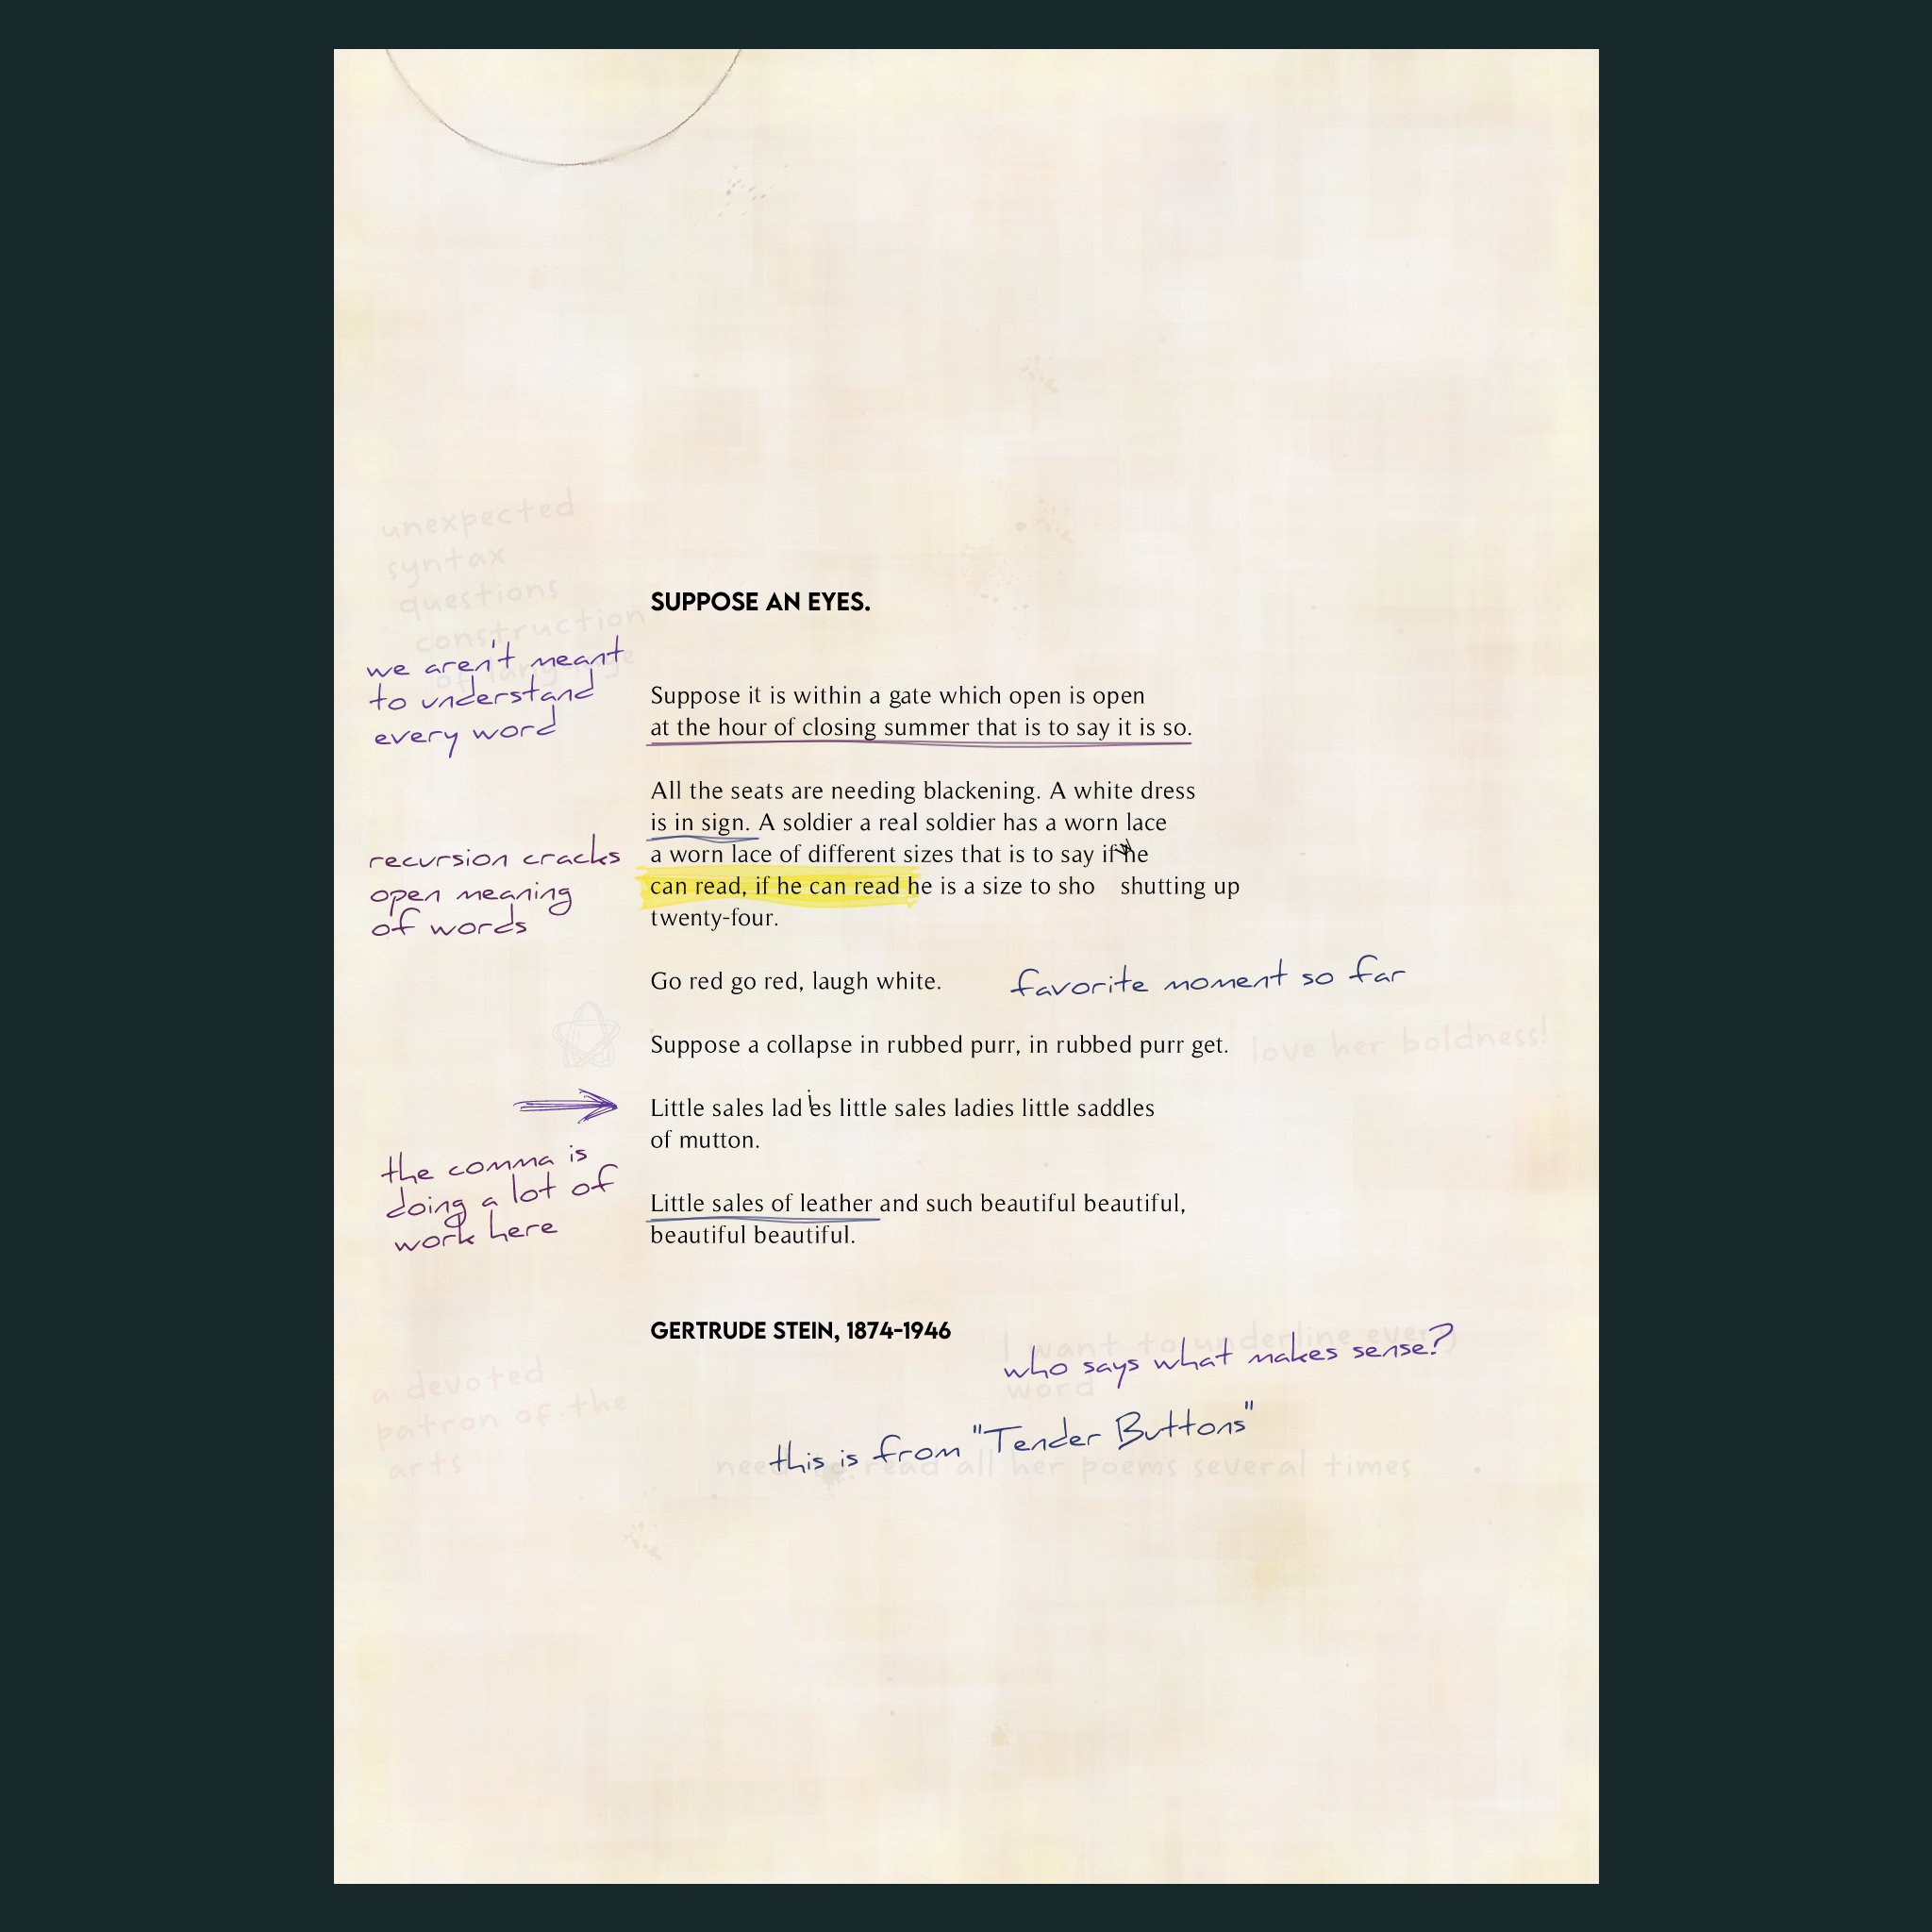 unexpected
syntax
questions
construction
of language
SUPPOSE AN EYES.
we aren't meant
to understand
every word
Suppose it is within a gate which open is open
at the hour of closing summer that is to say it is so.
All the seats are needing blackening. A white dress
is in sign. A soldier a real soldier has a worn lace
a worn lace of different sizes that is to say if he
can read, if he can read he is a size to sho shutting up
twenty-four.
recursion cracks
open meaning
of words
Go red go red, laugh white.
favorite moment so far
Suppose a collapse in rubbed purr, in rubbed purr get.
love her boldness!
Little sales ladies little sales ladies little saddles
of mutton.
the comma is
doing a lot of
work here
Little sales of leather and such beautiful beautiful,
beautiful beautiful.
GERTRUDE STEIN, 1874-1946
I want to underline every
word
who says what makes sense?
a devoted
patron of the
arts
this is from "Tender Buttons"
need to read all her poems several times